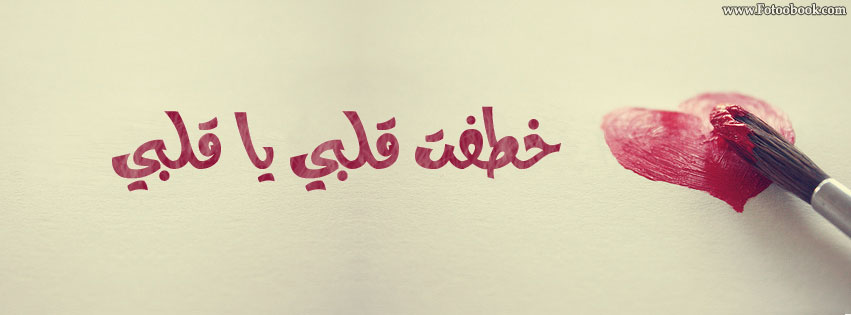 www.Fotoobook.com
خطفت قلبي يا قلبي